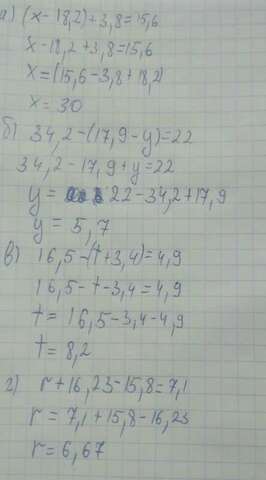 а) (x-18,2)+3,8=15,6
x-18,2+3,8=15,6
x=(15,6-3,8+18,2)
x=30
б) 34,2-(17,9-y)=22
34,2-17,9+y=22
y= 22-34,2+17,9
y=5,7
в) 16,5-(t+3,4)=4,9
16,5-t-3,4=4,9
t=16,5-3,4-4,9
t=8,2
г) r+16,23-15,8=7,1
r=7,1+15,8-16,23
r=6,67